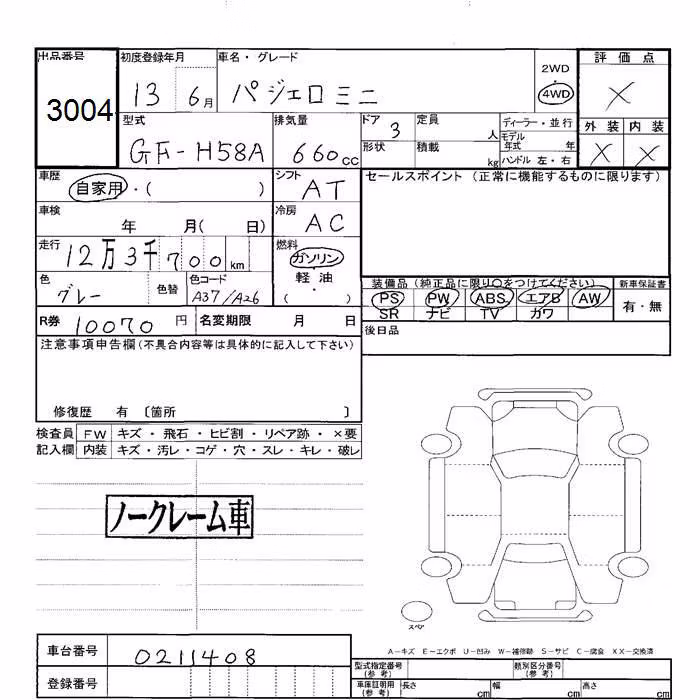 出品番号 初度登録年月 車名・グレード 2WD 評価点
3004 13 6月 パジェロミニ 4WD ×
型式 排気量 ドア 定員 ディーラー・並行 外装 内装
GF-H58A 660cc 3 人 モデル年式 年 × ×
形状 積載 kg ハンドル 左・右
車歴 シフト セールスポイント(正常に機能するものに限ります)
自家用・( ) AT
車検 冷房
年 月( 日) AC
走行 燃料
12万3千700km ガソリン
色 色替 色コード 軽油・
グレー A37/A26 ( )
装備品(純正品に限り○をつけてください) 新車保証書
PS PW ABS エアB AW 有・無
SR ナビ TV カワ
R券 10070円 名変期限 月 日 後日品
注意事項申告欄(不具合内容等は具体的に記入して下さい)
修復歴 有 〔箇所 〕
検査員 FW キズ・飛石・ヒビ割・リペア跡・×要
記入欄 内装 キズ・汚レ・コゲ・穴・スレ・キレ・破レ
ノークレーム車
スペア
A-キズ E-エクボ U-凹み W-補修跡 S-サビ C-腐食 XX-交換済
車台番号 0211408 型式指定番号(参考) 類別区分番号(参考)
登録番号 車庫証明用(参考) 長さ cm 幅 cm 高さ cm